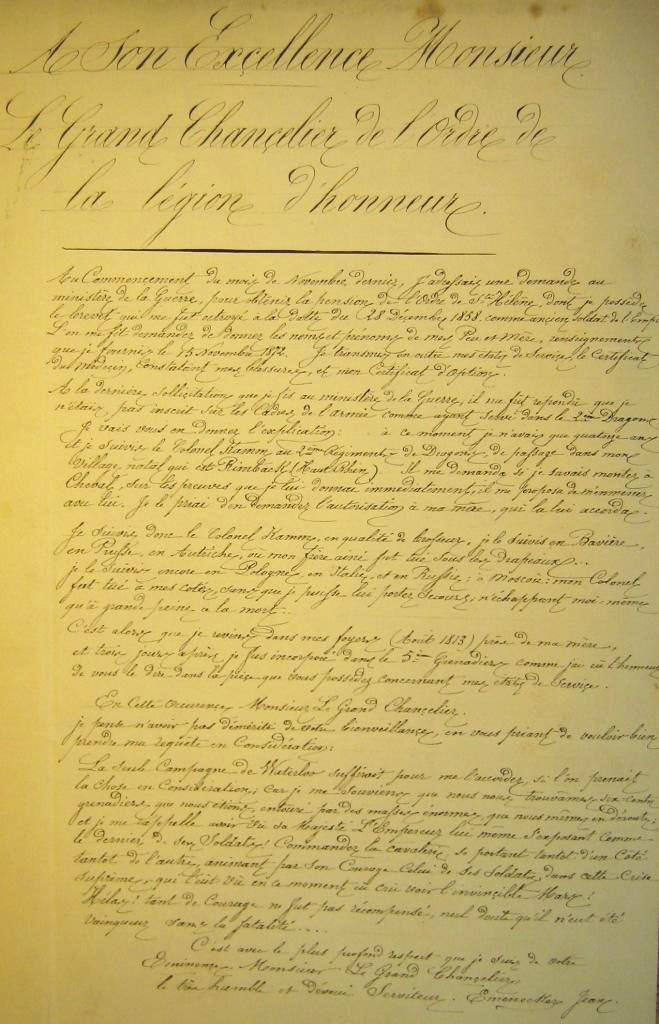 A Son Exçellence Monsieur
Le Grand Chançelier de l'Ordre de
la légion d'honneur.
Au Commençement du mois de Novembre dernier, J'adressais une demande au
ministère de la Guerre, pour obtenir la pension de l'Ordre de Ste Hélène dont je possède
le brevet qui me fut octroyé à la datte du 28 Décembre 1858 comme ancien soldat de l'Emp
L'on me fit demander de donner les noms et prénoms de mes Père et Mère, renseignements
que je fournis le 15 Novembre 1872. Je transmis en outre mes états de Service, le Certificat
du Médecin, constatant mes blessures, et mon Certificat d'Option.
A la dernière sollicitation que je fis au ministère de la Guerre, il me fut répondu que je
n'étais pas inscrit sur les Cadres de l'armée comme ayant servi dans le 2me Dragons
Je vais vous en donner l'explication: à ce moment je n'avais que quatorze ans
et je suivis le Colonel Hamm, au 2eme Régiment de Dragons, de passage dans mon
Village natal qui est (Haut Rhin) Il me demanda si je savais monter à
Cheval, sur les preuves que je lui donnai immédiatement, il me proposa de m'emmener
avec lui. Je le priai d'en demander l'autorisation à ma mère, qui la lui accorda.
Je suivis donc le Colonel Hamm, en qualité de brosseur, je le suivis en Bavière,
en Prusse, en Autriche, ou mon frère ainé fut tué sous les Drapeaux...
je le suivis encore en Pologne, en Italie, et en Russie; à Moscou; mon Colonel
fut tué à mes cotés, sans que je pusse lui porter Secours, n'échappant moi-même
qu'à grande peine a la mort.
C'est alors que je revins dans mes foyers (Août 1813) près de ma mère,
et trois jours après je fus incorporé dans le 5me Grenadiers comme j'ai eu l'honneur
de vous le dire dans la pièçe que vous possédez concernant mes états de Service.
En Cette occurence Monsieur Le Grand Chançelier.
je pense n'avoir pas démérité de votre bienveillance, en vous priant de vouloir bien
prendre ma requête en Considération:
La Seule Campagne de Waterloo Suffirait pour me l'accorder, si l'on prenait
la chose en Considération; Car je me Souviens que nous nous trouvâmes Six Cents
grenadiers que nous étions, entouré par des masses énormes que nous mîmes en déroute;
et je me rappelle avoir vu sa Majesté L'Empereur lui même s'exposant Comme
le dernier de ses Soldats! Commander la cavalerie se portant tantot d'un Coté
tantot de l'autre, animant par Son Courage Celui de Ses Soldats, dans cette Crise
Suprême, qui l'eut vu en ce moment eu cru voir l'invincible Mars!
Hélas! tant de Courage ne fut pas récompensé, nul doute qu'il n'eut été
vainqueur sans la fatalité....
C'est avec le plus profond respect que je suis de votre
Eminence Monsieur Le Grand Chançelier
le très humble et dévoué Serviteur. Jean